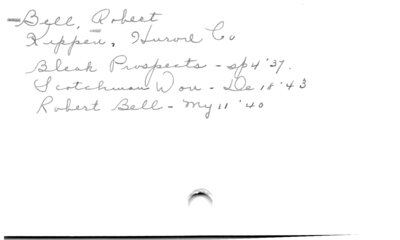 Bell, Robert
Kippen, Huron Co
Bleak Prospects - sp 4 '37.
Scotchman Won - De 18 '43
Robert Bell - My 11 '40